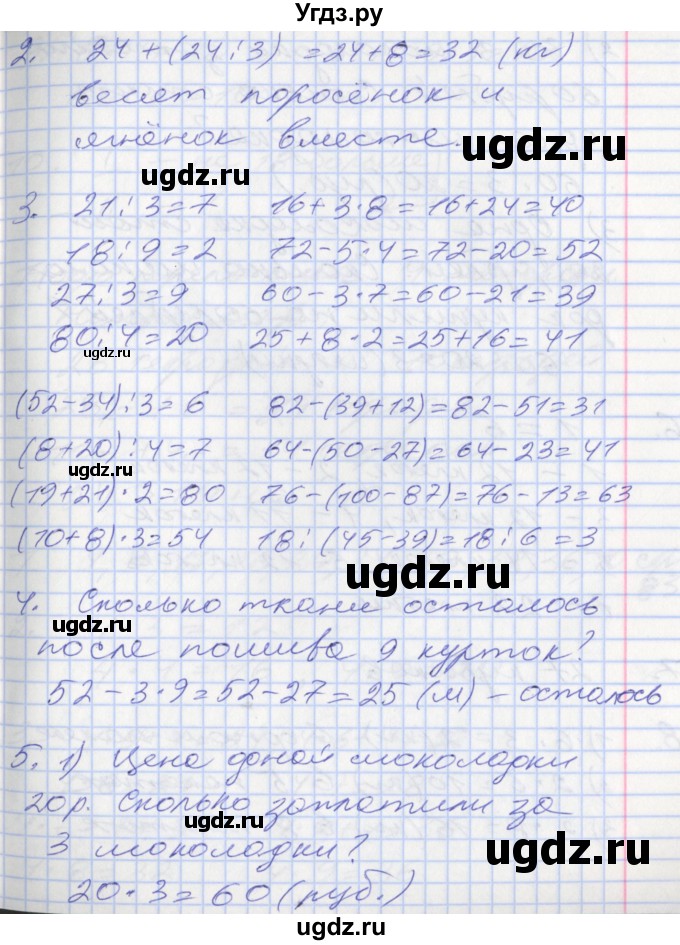 Угдз.ру
2. 24 + (24 : 3) = 24 + 8 = 32 (кг)
весят поросёнок и
ягнёнок вместе.
ugdz.ru
ugdz.ru
3. 21 : 3 = 7 16 + 3 · 8 = 16 + 24 = 40
18 : 9 = 2 72 - 5 · 4 = 72 - 20 = 52
27 : 3 = 9 60 - 3 · 7 = 60 - 21 = 39
80 : 4 = 20 25 + 8 · 2 = 25 + 16 = 41
ugdz.ru
(52 - 34) : 3 = 6 82 - (39 + 12) = 82 - 51 = 31
(8 + 20) : 4 = 7 64 - (50 - 27) = 64 - 23 = 41
ugdz.ru
(19 + 21) · 2 = 80 76 - (100 - 87) = 76 - 13 = 63
(10 + 8) · 3 = 54 18 : (45 - 39) = 18 : 6 = 3
ugdz.ru
4. Сколько ткани осталось
ugdz.ru
после пошива 9 курток?
52 - 3 · 9 = 52 - 27 = 25 (м) - осталось
5. 1) Цена одной шоколадки
20р. Сколько заплатили за
ugdz.ru
ugdz.ru
3 шоколадки?
20 · 3 = 60 (руб.)
ugdz.ru